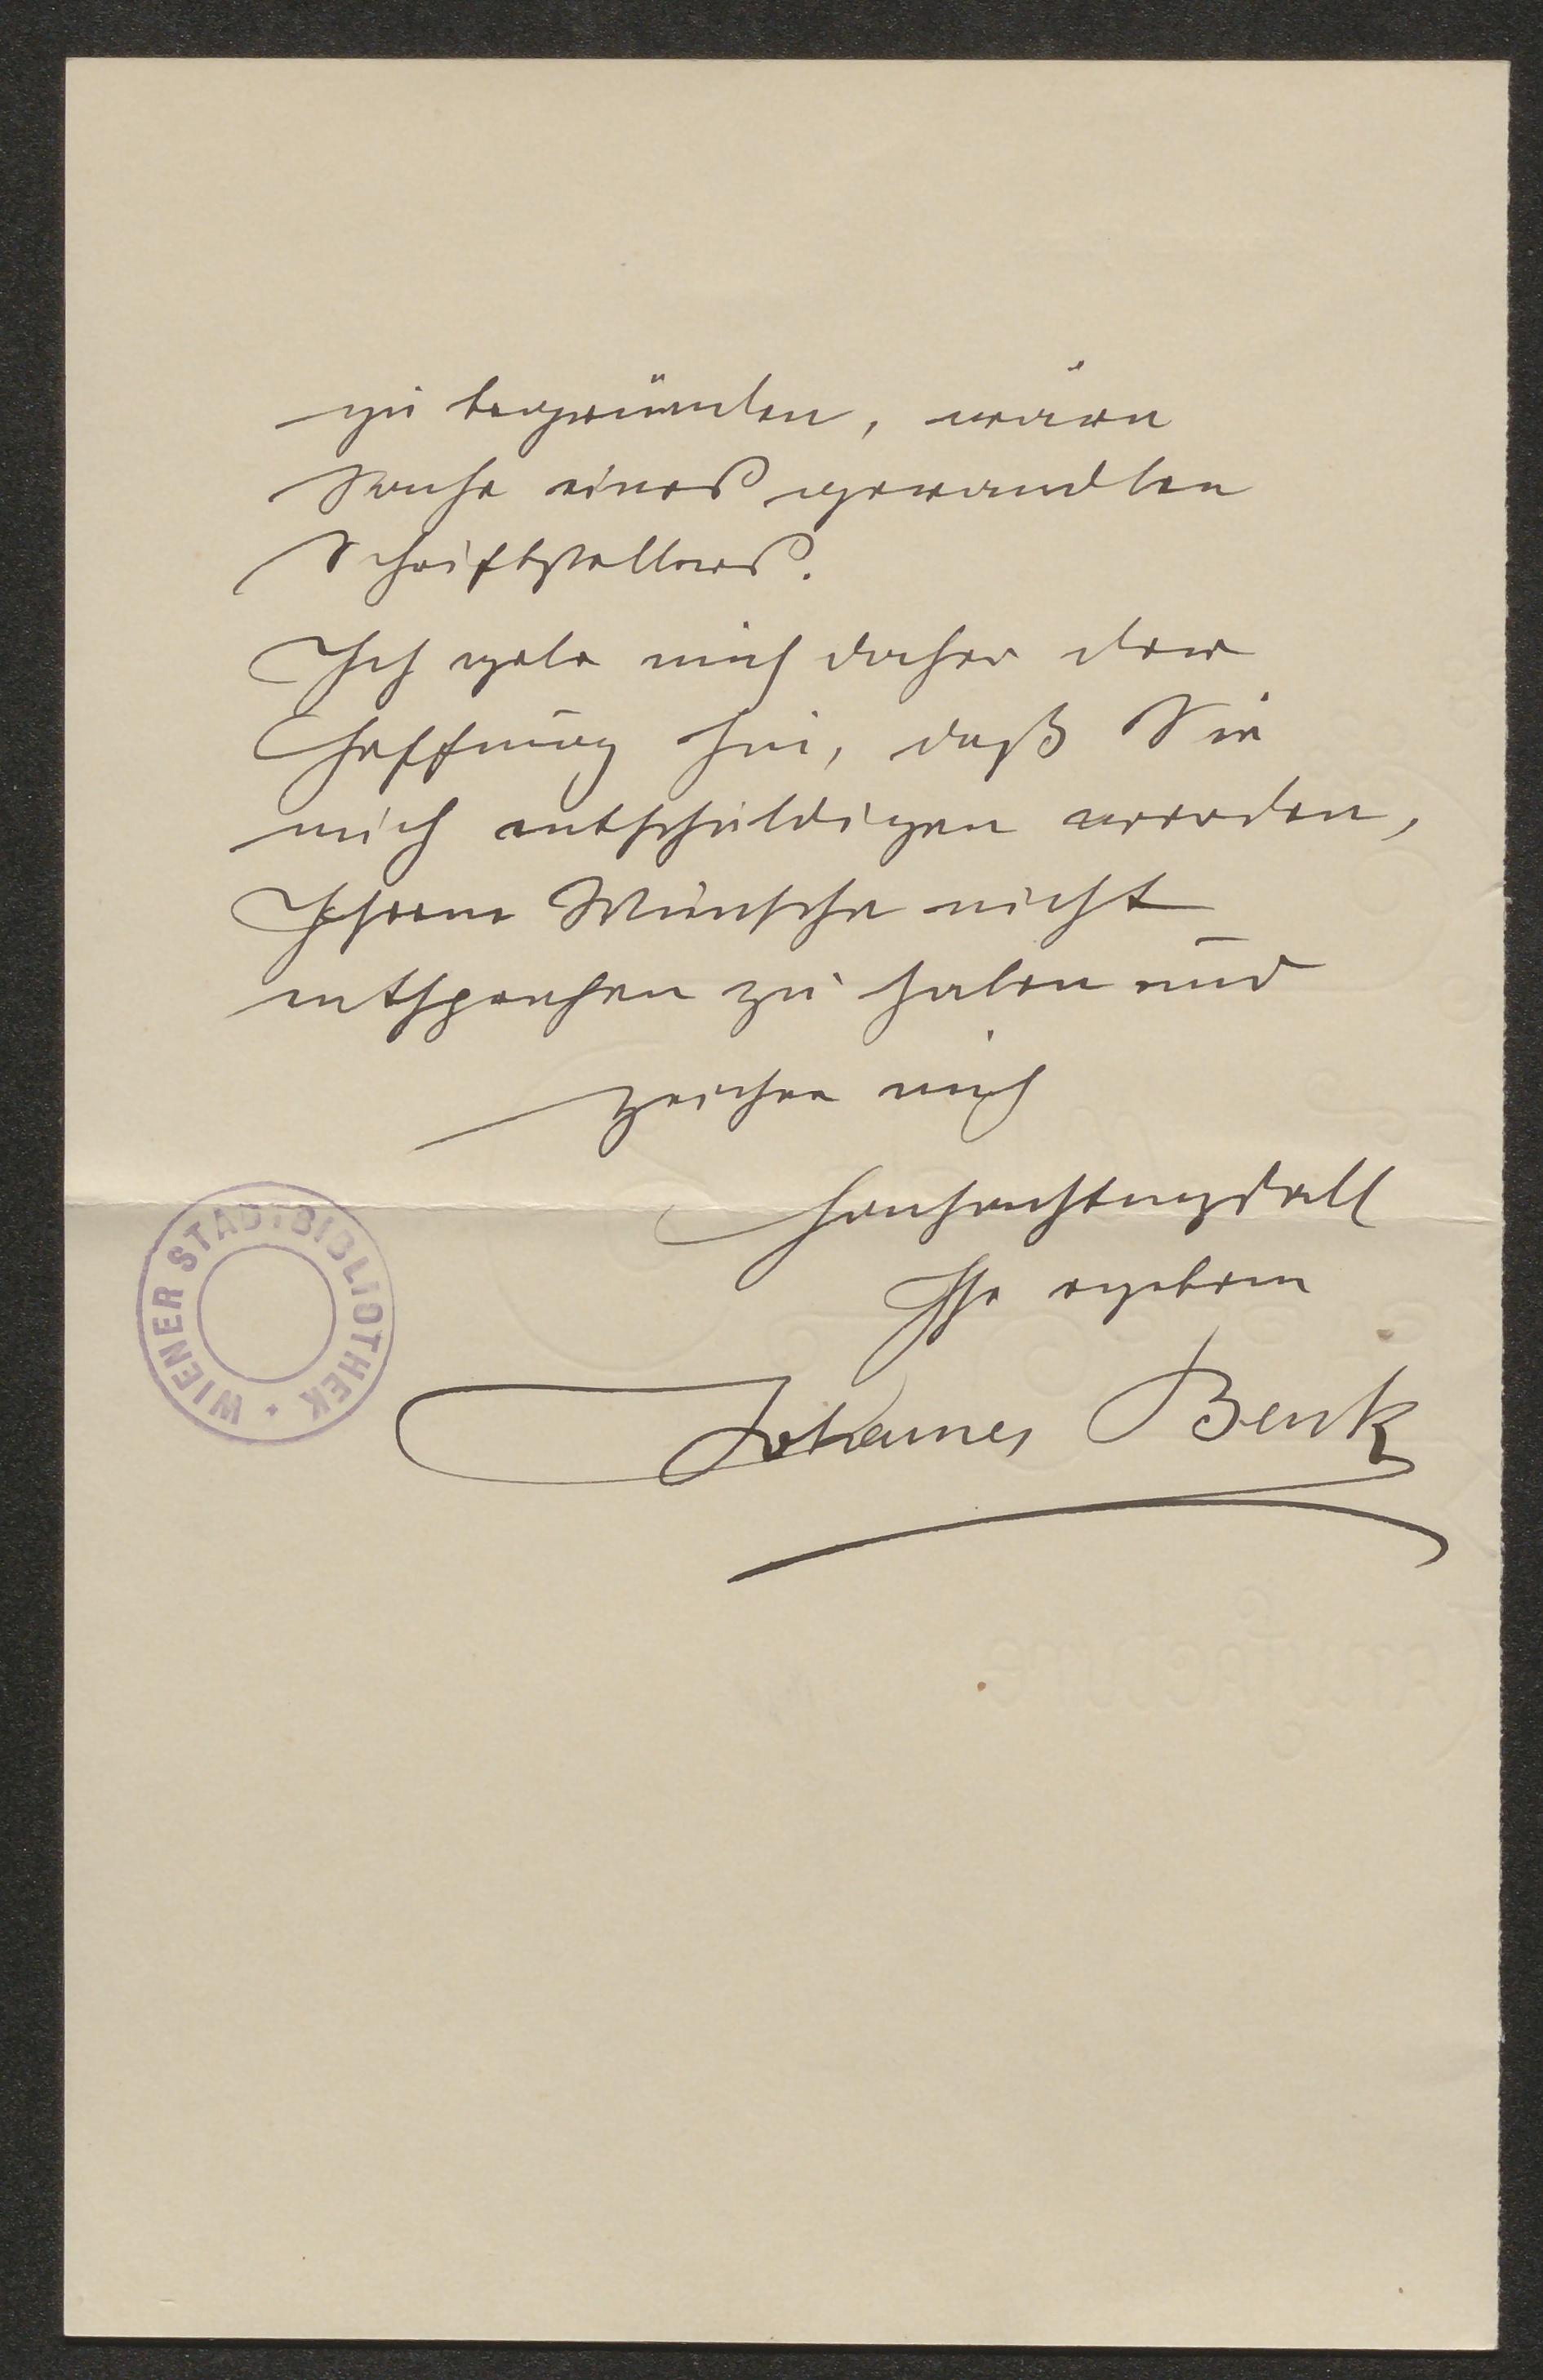 zu begründen, wäre
Sache eines gewandten
Schriftstellers.
Ich gebe mich daher der
Hoffnung hin, daß Sie
mich entschuldigen werden,
Ihrem Wunsche nicht
entsprochen zu haben und
zeichne mich
hochachtungsvoll
Ihr ergebener
Johannes Benk
WIENER STADTBIBLIOTHEK